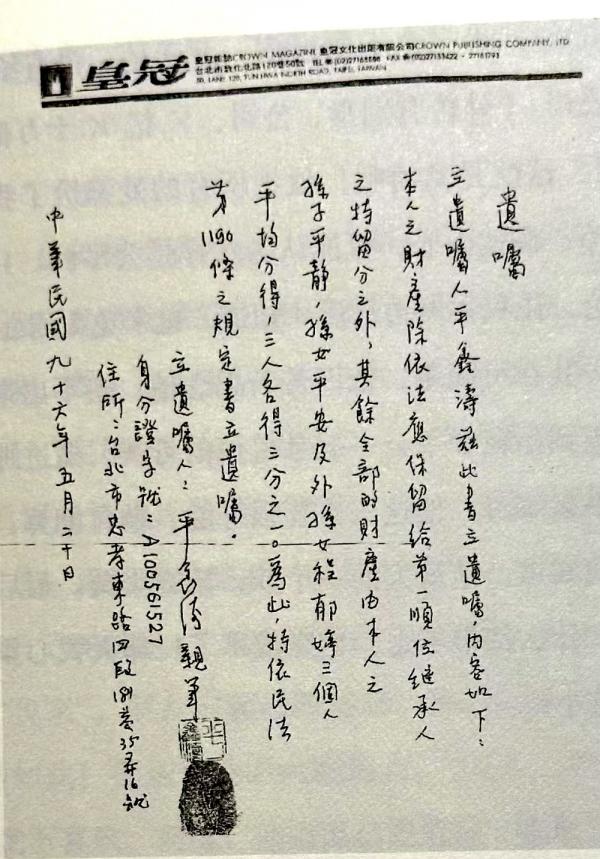 皇冠
皇冠雜誌CROWN MAGAZINE 皇冠文化出版有限公司CROWN PUBLISHING COMPANY, LTD
台北市敦化北路120巷50號 TEL (02)27168888 FAX (02)27133422・27161793
50, LANE 120, TUN HWA NORTH ROAD, TAIPEI, TAIWAN
遺囑
立遺囑人平鑫濤茲此書立遺囑,內容如下:
本人之財產除依法應保留給第一順位繼承人
之特留分之外,其餘全部的財產由本人之
孫子平靜,孫女平安及外孫女程郁婷三個人
平均分得,三人各得三分之一。為此,特依民法
第1190條之規定書立遺囑。
立遺囑人:平鑫濤親筆
身分證字號:A100561527
住所:台北市忠孝東路四段 巷35弄16號
中華民國九十六年五月二十日